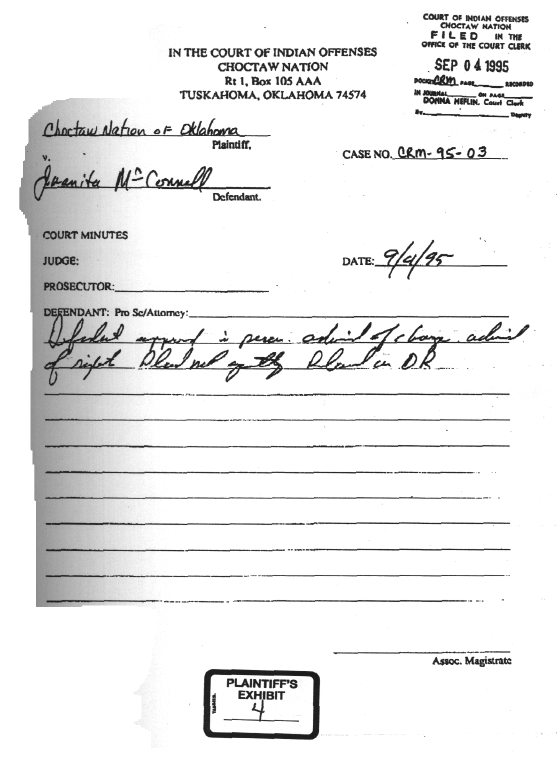 COURT OF INDIAN OFFENSES
CHOCTAW NATION
FILED IN THE
OFFICE OF THE COURT CLERK
SEP 04 1995
DOCKET CRM PAGE RECORDED
IN JOURNAL ON PAGE
DONNA HEFLIN, Court Clerk
By Deputy
IN THE COURT OF INDIAN OFFENSES
CHOCTAW NATION
Rt 1, Box 105 AAA
TUSKAHOMA, OKLAHOMA 74574
Choctaw Nation of Oklahoma
Plaintiff,
v.
CASE NO. CRM-95-03
Juanita McConnell
Defendant.
COURT MINUTES
JUDGE:
DATE: 9/4/95
PROSECUTOR:
DEFENDANT: Pro Se/Attorney:
Defendant appeared in person. advised of charge advised
of right Plead not guilty Released on O.R
Assoc. Magistrate
PLAINTIFF'S
EXHIBIT
4